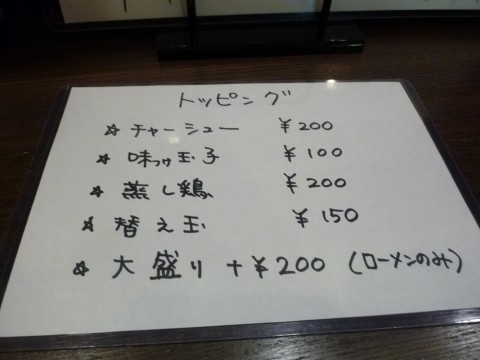 トッピング
☆ チャーシュー ¥200
☆ 味つけ玉子 ¥100
☆ 蒸し鶏 ¥200
☆ 替え玉 ¥150
☆ 大盛り +¥200 (ローメンのみ)